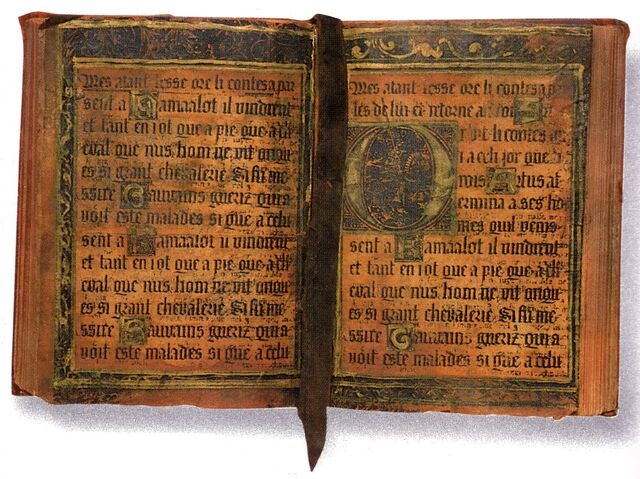 Mes atant lesse ore li contes a par
sent a Kamaalot il vindrent
et tant en i ot que a pie que a ch
eval que nus hom ne vit onqu
es si grant chevalerie. Si fu me
ssire Gauvains gueriz qui a
voit este malades si que a celui
sent a Kamaalot il vindrent
et tant en i ot que a pie que a ch
eval que nus hom ne vit onqu
es si grant chevalerie. Si fu me
ssire Gauvains gueriz qui a
voit este malades si que a celui
Mes atant lesse ore li contes a pa
les de lui et retorne a
r dit li contes
i a celi jor que li
rois Artus at
ermina a ses ho
mes quil venis
sent a Kamaalot il vindrent
et tant en i ot que a pie que a ch
eval que nus hom ne vit onqu
es si grant chevalerie. Si fu me
ssire Gauvains gueriz qui a
voit este malades si que a celui